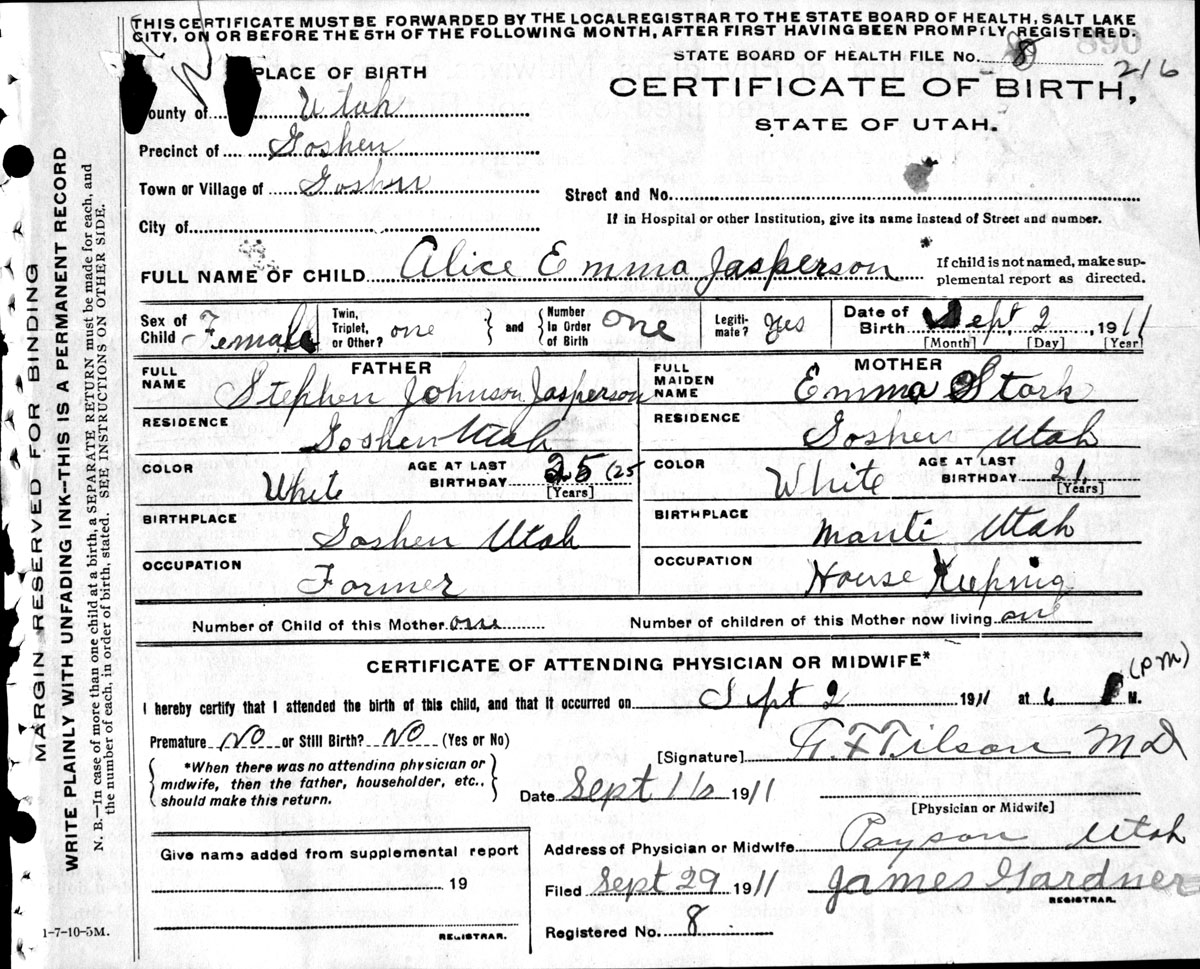 THIS CERTIFICATE MUST BE FORWARDED BY THE LOCALREGISTRAR TO THE STATE BOARD OF HEALTH, SALT LAKE
CITY, ON OR BEFORE THE 5TH OF THE FOLLOWING MONTH, AFTER FIRST HAVING BEEN PROMPILY REGISTERED.
STATE BOARD OF HEALTH FILE No. 8 216
PLACE OF BIRTH
CERTIFICATE OF BIRTH,
STATE OF UTAH.
ounty of Utah
Precinct of Goshen
Town or Village of Goshen
Street and No.
City of
If in Hospital or other Institution, give its name instead of Street and number.
FULL NAME OF CHILD Alice Emma Jasperson
If child is not named, make sup-
plemental report as directed.
Sex of Child Female
Twin, Triplet, or Other? one
and Number In Order of Birth one
Legiti-mate? yes
Date of Birth Sept, 2, 1911
[Month] [Day] [Year]
FATHER
FULL NAME Stephen Johnson Jasperson
RESIDENCE Goshen Utah
COLOR White
AGE AT LAST BIRTHDAY 25 (25
[Years]
BIRTHPLACE Goshen Utah
OCCUPATION Former
MOTHER
FULL MAIDEN NAME Emma Stork
RESIDENCE Goshen Utah
COLOR White
AGE AT LAST BIRTHDAY 21
[Years]
BIRTHPLACE Manti Utah
OCCUPATION House Keeping
Number of Child of this Mother one
Number of children of this Mother now living one
CERTIFICATE OF ATTENDING PHYSICIAN OR MIDWIFE*
I hereby certify that I attended the birth of this child, and that it occurred on Sept 2 1911 at 6 M. (PM)
Premature No or Still Birth? No (Yes or No)
[Signature] Tilson MD
*When there was no attending physician or
midwife, then the father, householder, etc.,
should make this return.
Date Sept 1911
[Physician or Midwife]
Address of Physician or Midwife Payson Utah
Give name added from supplemental report
19
REGISTRAR.
Filed Sept 29 1911 James Gardner
REGISTRAR.
Registered No. 8
1-7-10-5M.
MARGIN RESERVED FOR BINDING
WRITE PLAINLY WITH UNFADING INK--THIS IS A PERMANENT RECORD
N. B.—In case of more than one child at a birth, a SEPARATE RETURN must be made for each, and
the number of each, in order of birth, stated. SEE INSTRUCTIONS ON OTHER SIDE.